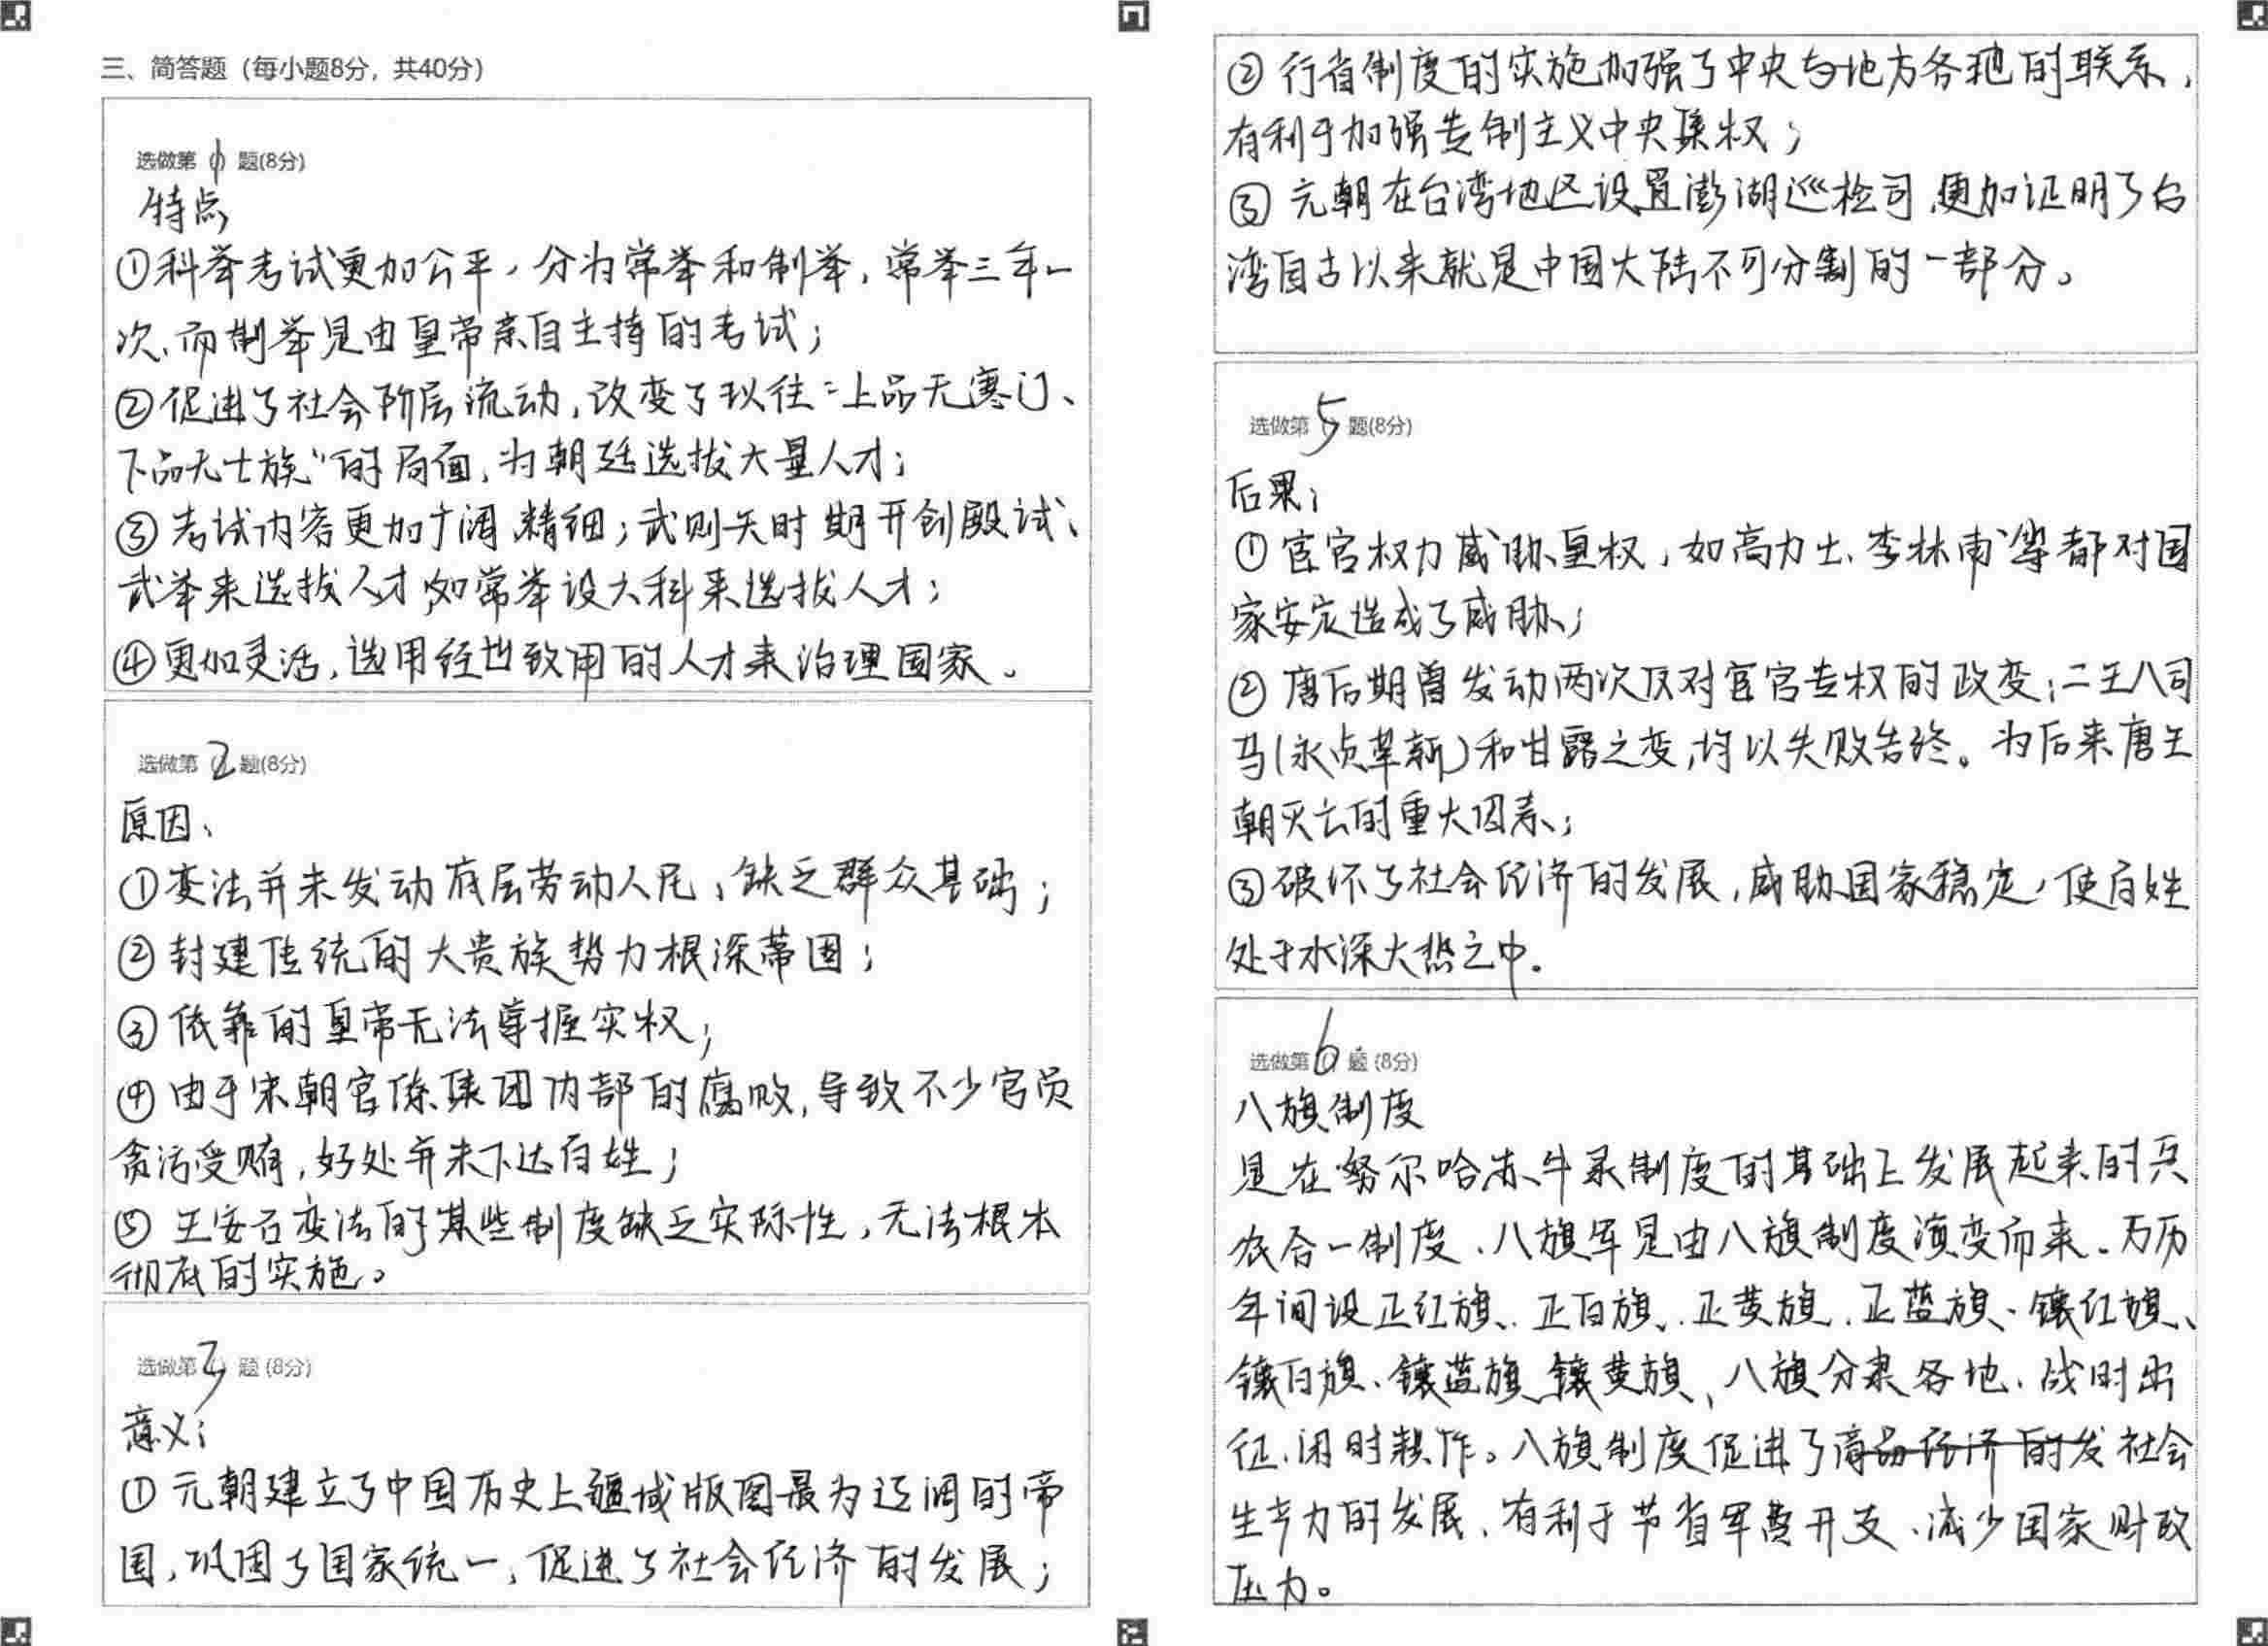 三、简答题（每小题8分，共40分）
选做第（1）题(8分)
特点
①科举考试更加公平，分为常举和制举，常举三年一
次、而制举是由皇帝亲自主持的考试；
②促进了社会阶层流动，改变了以往“上品无寒门、
下品无士族”的局面，为朝廷选拔大量人才；
③考试内容更加广阔、精细；武则天时期开创殿试、
武举来选拔人才，如常举设六科来选拔人才；
④更加灵活，选用经世致用的人才来治理国家。
选做第（2）题(8分)
原因、
①变法并未发动底层劳动人民，缺乏群众基础；
②封建传统的大贵族势力根深蒂固；
③依靠的皇帝无法掌握实权；
④由于宋朝官僚集团内部的腐败，导致不少官员
贪污受贿，好处并未下达百姓；
⑤王安石变法的某些制度缺乏实际性，无法根本
彻底的实施。
选做第（3）题(8分)
意义：
①元朝建立了中国历史上疆域版图最为辽阔的帝
国，巩固了国家统一，促进了社会经济的发展；
②行省制度的实施加强了中央与地方各地的联系，
有利于加强专制主义中央集权；
③元朝在台湾地区设置澎湖巡检司，更加证明了台
湾自古以来就是中国大陆不可分割的一部分。
选做第（5）题(8分)
后果：
①宦官权力威胁皇权，如高力士、李林甫等都对国
家安定造成了威胁；
②唐后期曾发动两次反对宦官专权的政变：二王八司
马(永贞革新)和甘露之变，均以失败告终。为后来唐王
朝灭亡的重大因素；
③破坏了社会经济的发展，威胁国家稳定，使百姓
处于水深火热之中。
选做第（6）题(8分)
八旗制度
是在努尔哈赤牛录制度的基础上发展起来的兵
农合一制度、八旗军是由八旗制度演变而来。万历
年间设正红旗、正白旗、正黄旗、正蓝旗、镶红旗、
镶白旗、镶蓝旗、镶黄旗、八旗分隶各地、战时出
征、闲时耕作。八旗制度促进了商品经济的发社会
生产力的发展、有利于节省军费开支、减少国家财政
压力。